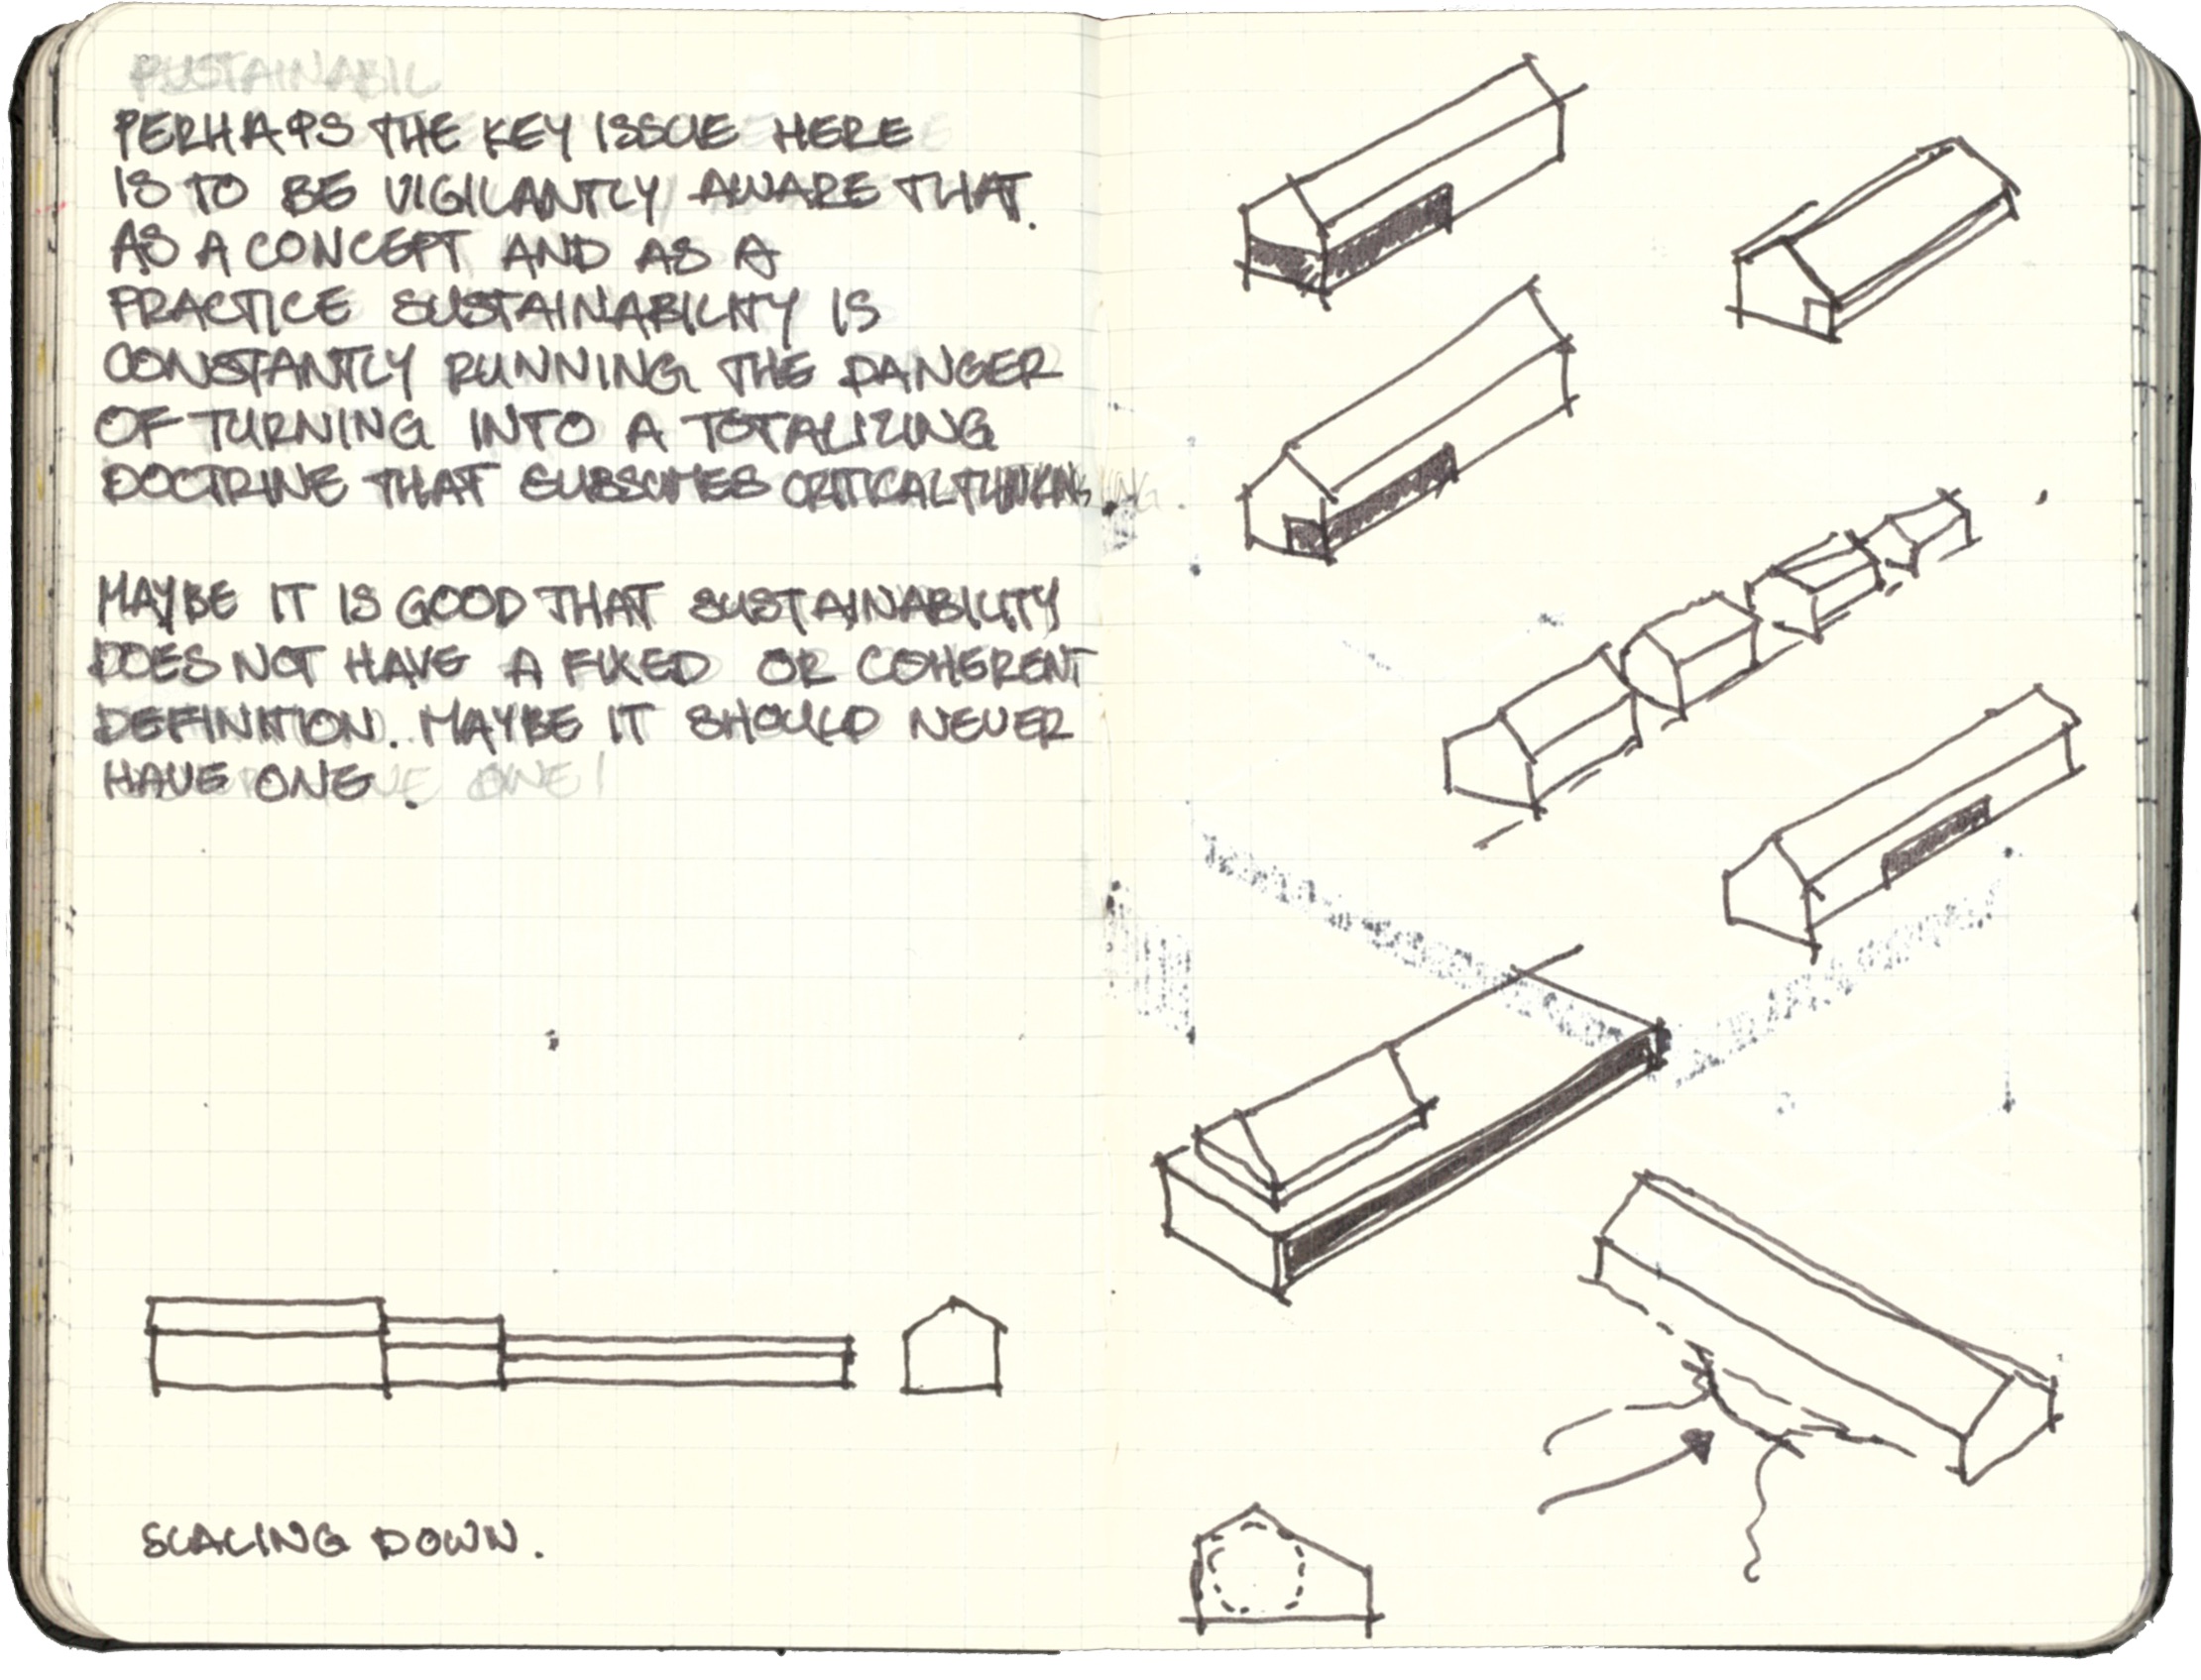 SUSTAINABIL
PERHAPS THE KEY ISSUE HERE
IS TO BE VIGILANTLY AWARE THAT.
AS A CONCEPT AND AS A
PRACTICE SUSTAINABILITY IS
CONSTANTLY RUNNING THE DANGER
OF TURNING INTO A TOTALIZING
DOCTRINE THAT SUBSUMES CRITICAL THINKING
MAYBE IT IS GOOD THAT SUSTAINABILITY
DOES NOT HAVE A FIXED OR COHERENT
DEFINITION. MAYBE IT SHOULD NEVER
HAVE ONE.
SCALING DOWN.